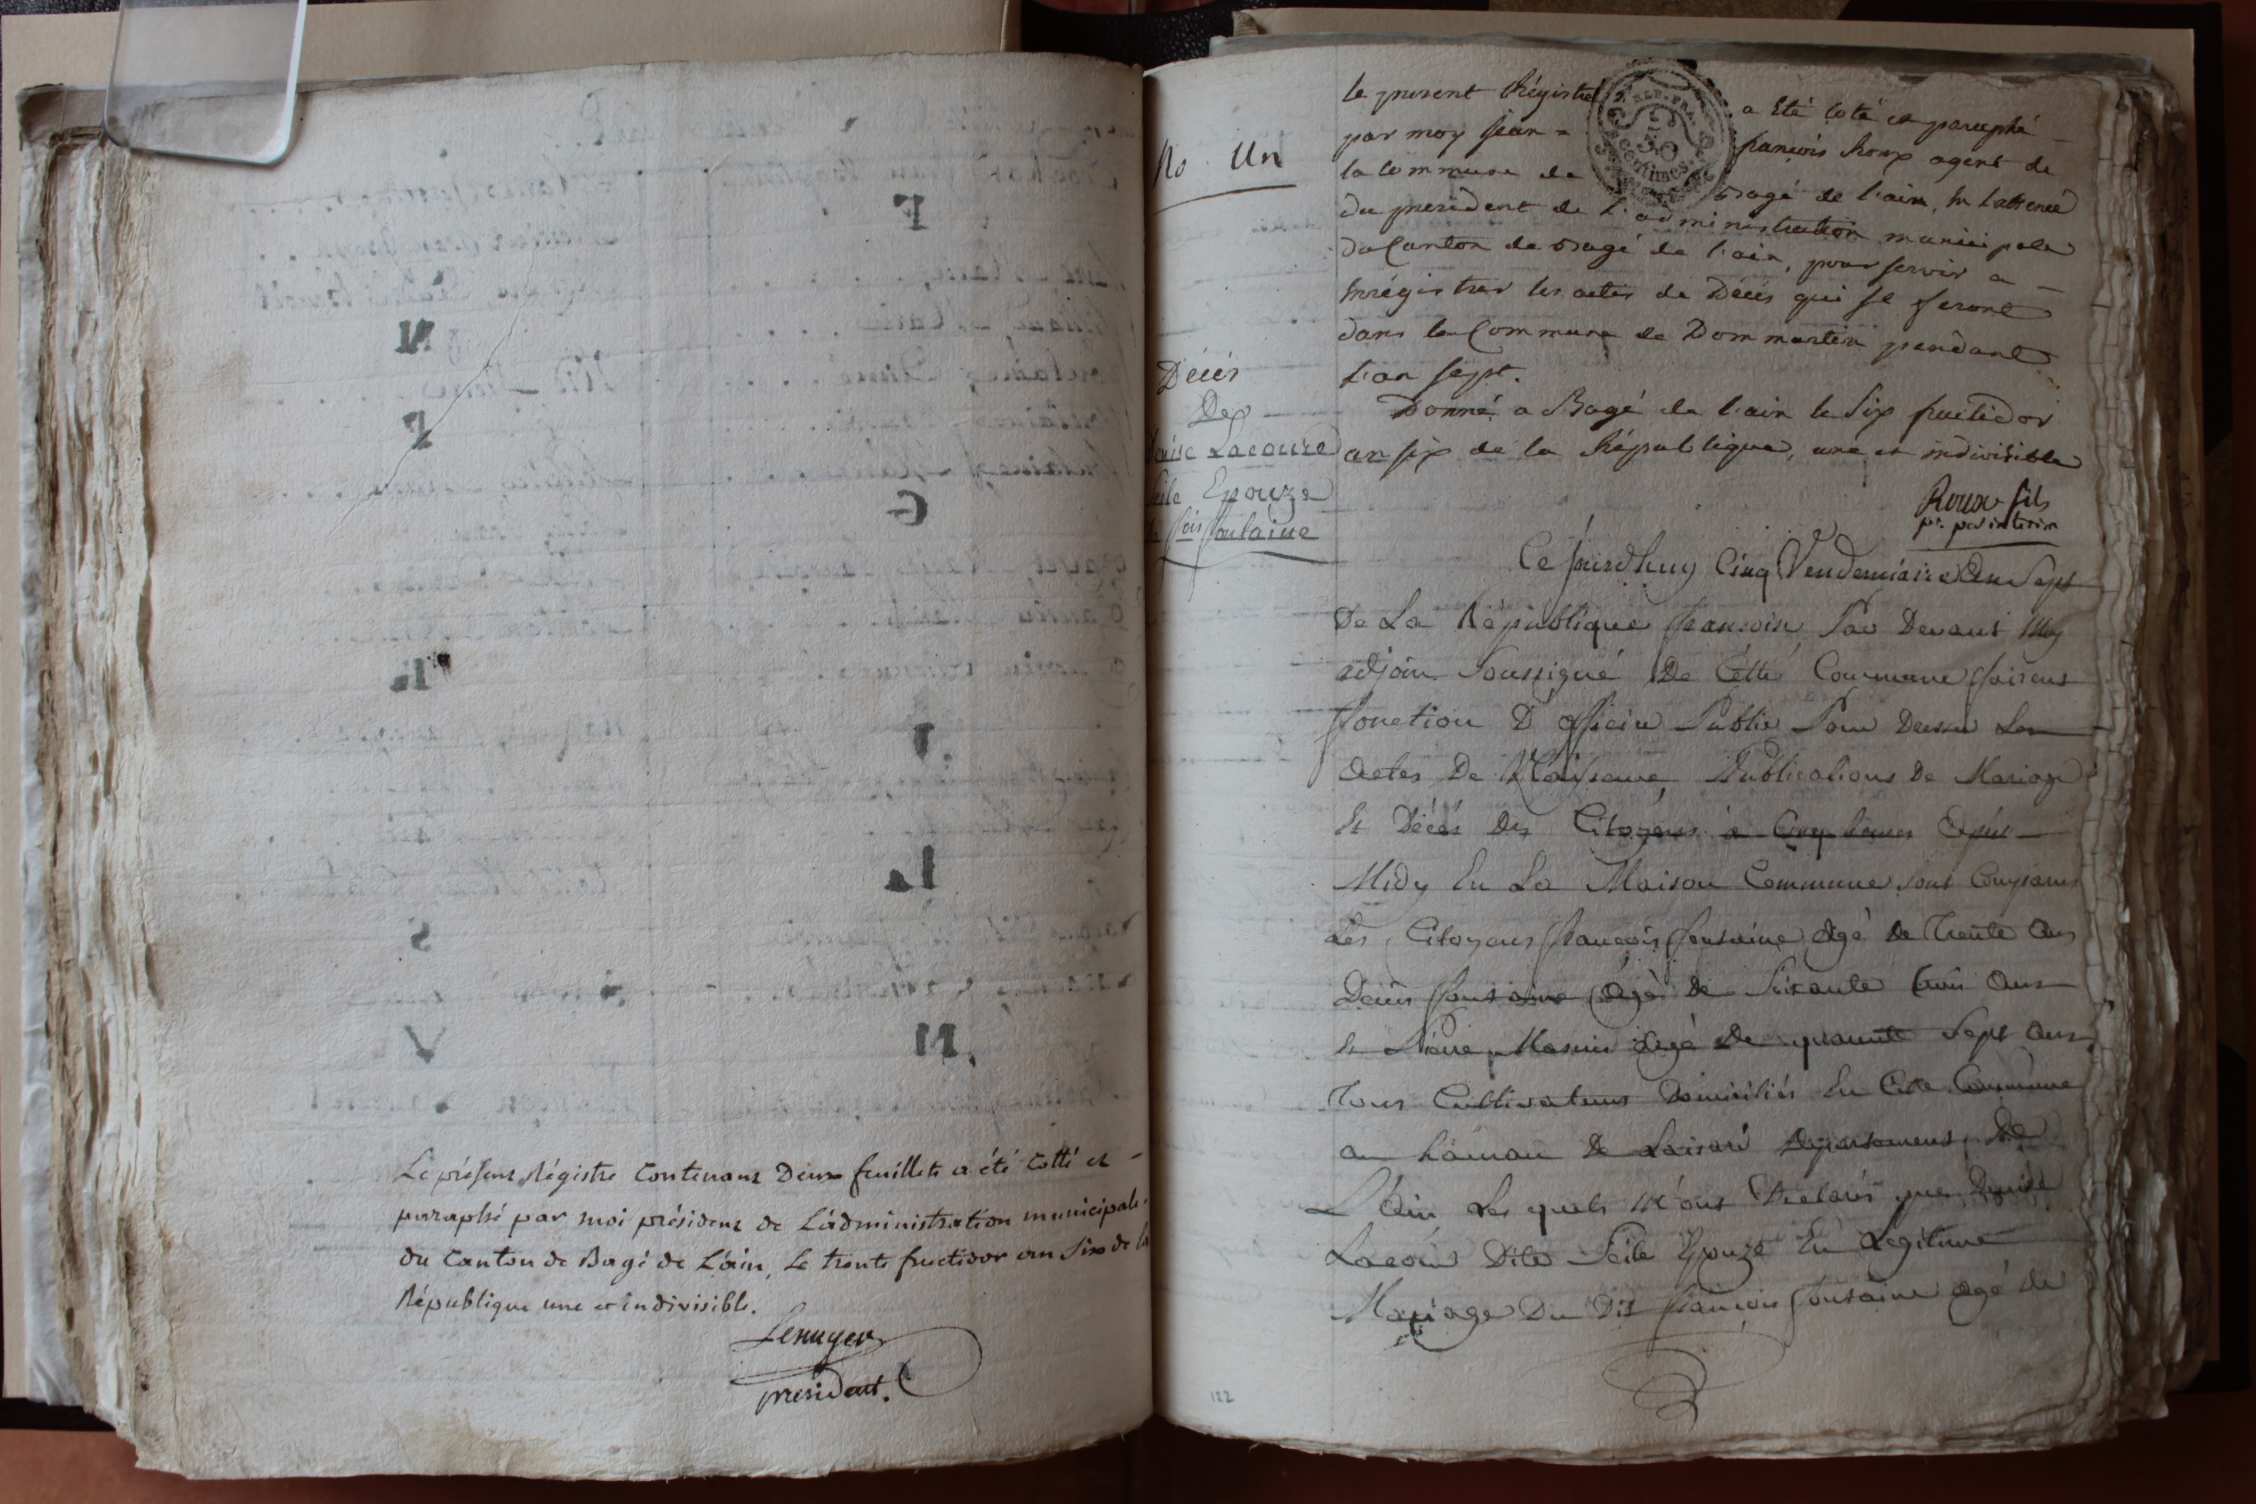 Le présent Régistre contenant Deux feuillets a été cotté et
paraphé par moi président de L'administration municipale
du Canton de Bagé de L'ain, Le trente fructidor an Six de la
République une et indivisible.
président.
F
N
P
G
R
I
L
S
M
V
No Un
Décés
De
Lacour
Epouze
fontaine
le present Régistre a été coté et paraphé
par moy jean = françois Roux agent de
la Commune de Bagé de l'ain, en l'absence
du president de l'administration municipale
du Canton de Bagé de l'ain, pour servir a
Enrégistrer les actes de Décés qui se feront
dans la Commune de Dommartin pendant
l'an sept.
Donné a Bagé de l'ain le Six fructidor
an six de la République, une et indivisible
Roux fils
pt. par interim
REP. FRA.
50
centimes
Ce jourdhuy Cinq Vendemiaire An Sept
De La République francoise Par Devant Moy
adjoin Soussigné De Cette Commune faisant
fonction D officier Public Pour
Actes De Naissance, Publications De Mariage
Et Décés Des Citoyens a Cinq heures Apres
Midy En La Maison Commune sont Comparus
Les Citoyens francois fontaine Agé De Trente Ans
Denis fontaine Agé De Soixante trois Ans
et Pierre Agé De quarente Sept Ans
Tous Cultivateurs Domiciliés En Cette Commune
au hamau De Departement De
L'Ain Les quels M'ont Declarés que
Lacour Dite Epouze En Legitime
Mariage Du Dit francois fontaine agé de
122